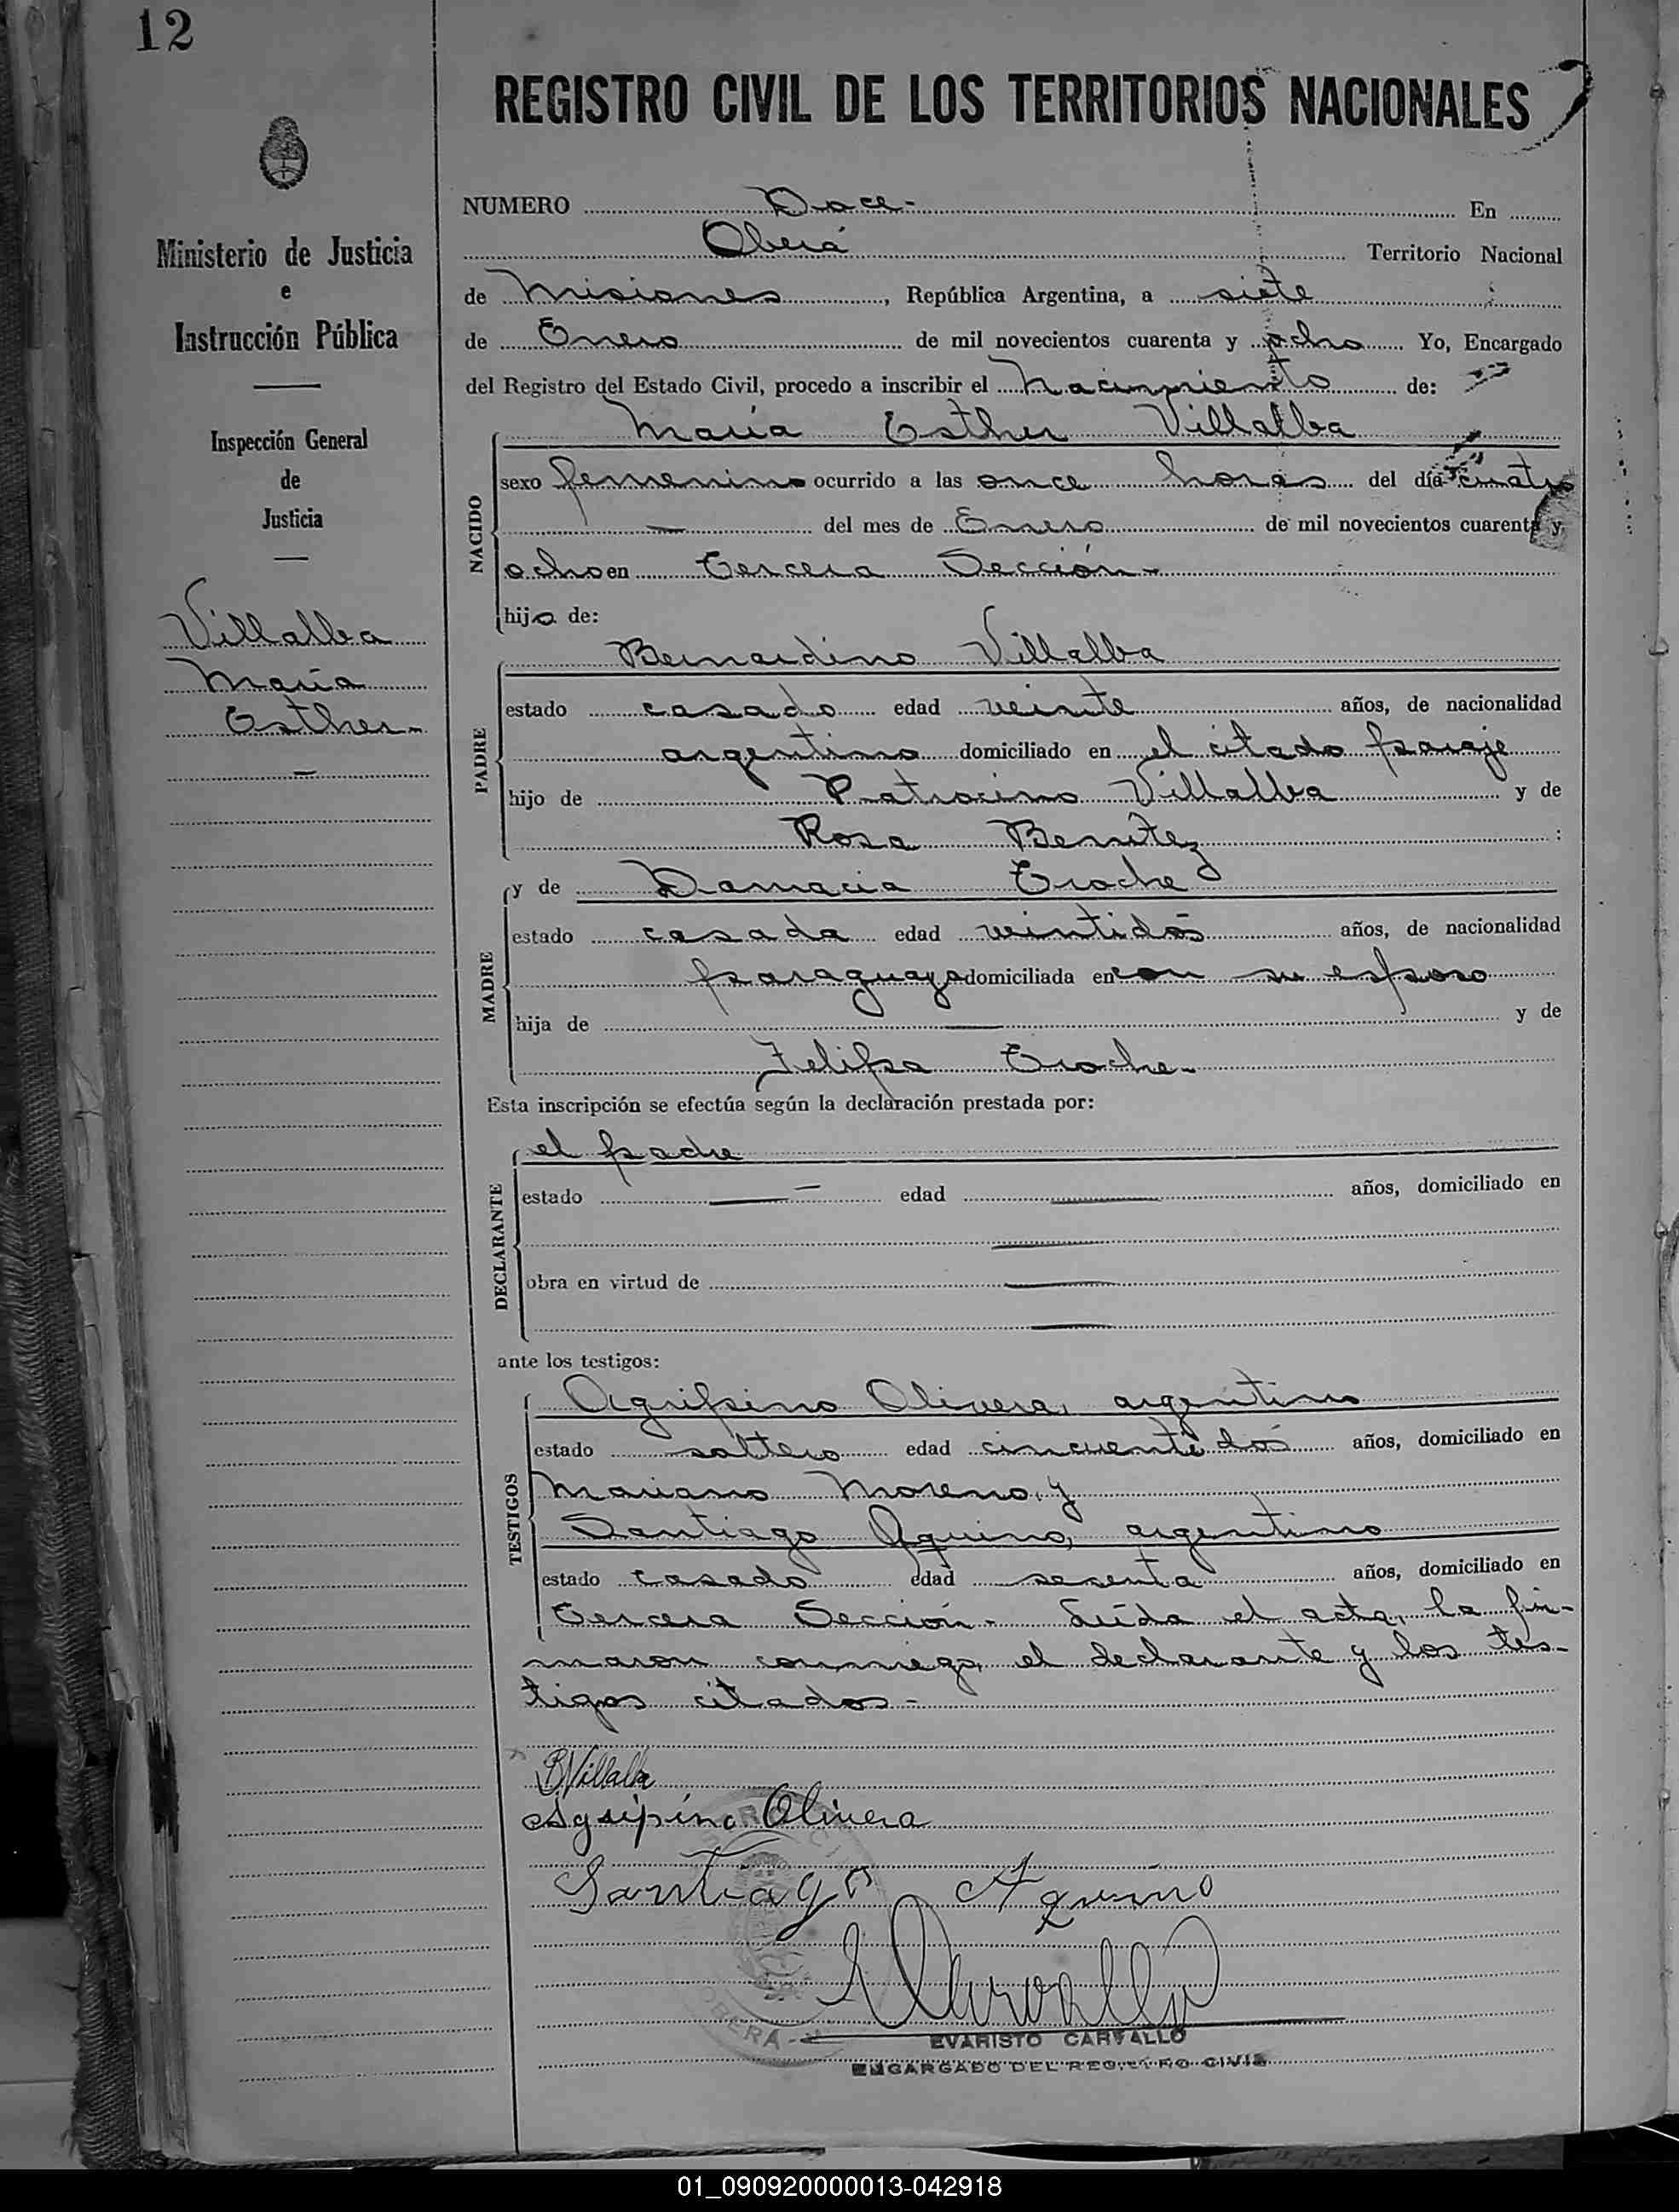 12
REGISTRO CIVIL DE LOS TERRITORIOS NACIONALES
Ministerio de Justicia
e
Instrucción Pública
Inspección General
de
Justicia
Villalba
María
Esther
NUMERO Doce.- En
Oberá Territorio Nacional
de Misiones, República Argentina, a siete
de Enero de mil novecientos cuarenta y ocho Yo, Encargado
del Registro del Estado Civil, procedo a inscribir el nacimiento de:
María Esther Villalba
NACIDO
sexo femenino ocurrido a las once horas del día cuatro
del mes de Enero de mil novecientos cuarenta y
ocho en Tercera Sección.-
hija de:
Bernardino Villalba
PADRE
estado casado edad veinte años, de nacionalidad
argentino domiciliado en el citado paraje
hijo de Patrocinio Villalba y de
Rosa Benítez
y de Damacia Troche
MADRE
estado casada edad veintidós años, de nacionalidad
paraguaya domiciliada en con su esposo
hija de y de
Felipa Troche.-
Esta inscripción se efectúa según la declaración prestada por:
el padre
DECLARANTE
estado edad años, domiciliado en
obra en virtud de
ante los testigos:
Agripino Olivera, argentino
TESTIGOS
estado soltero edad cincuentidós años, domiciliado en
Mariano Moreno, y
Santiago Aquino, argentino
estado casado edad sesenta años, domiciliado en
Tercera Sección.- Leída el acta, la fir-
maron conmigo, el declarante y los tes-
tigos citados.-
B Villalba
Agripino Olivera
Santiago Aquino
OBERA
EVARISTO CARVALLO
ENCARGADO DEL REGISTRO CIVIL
01_090920000013-042918